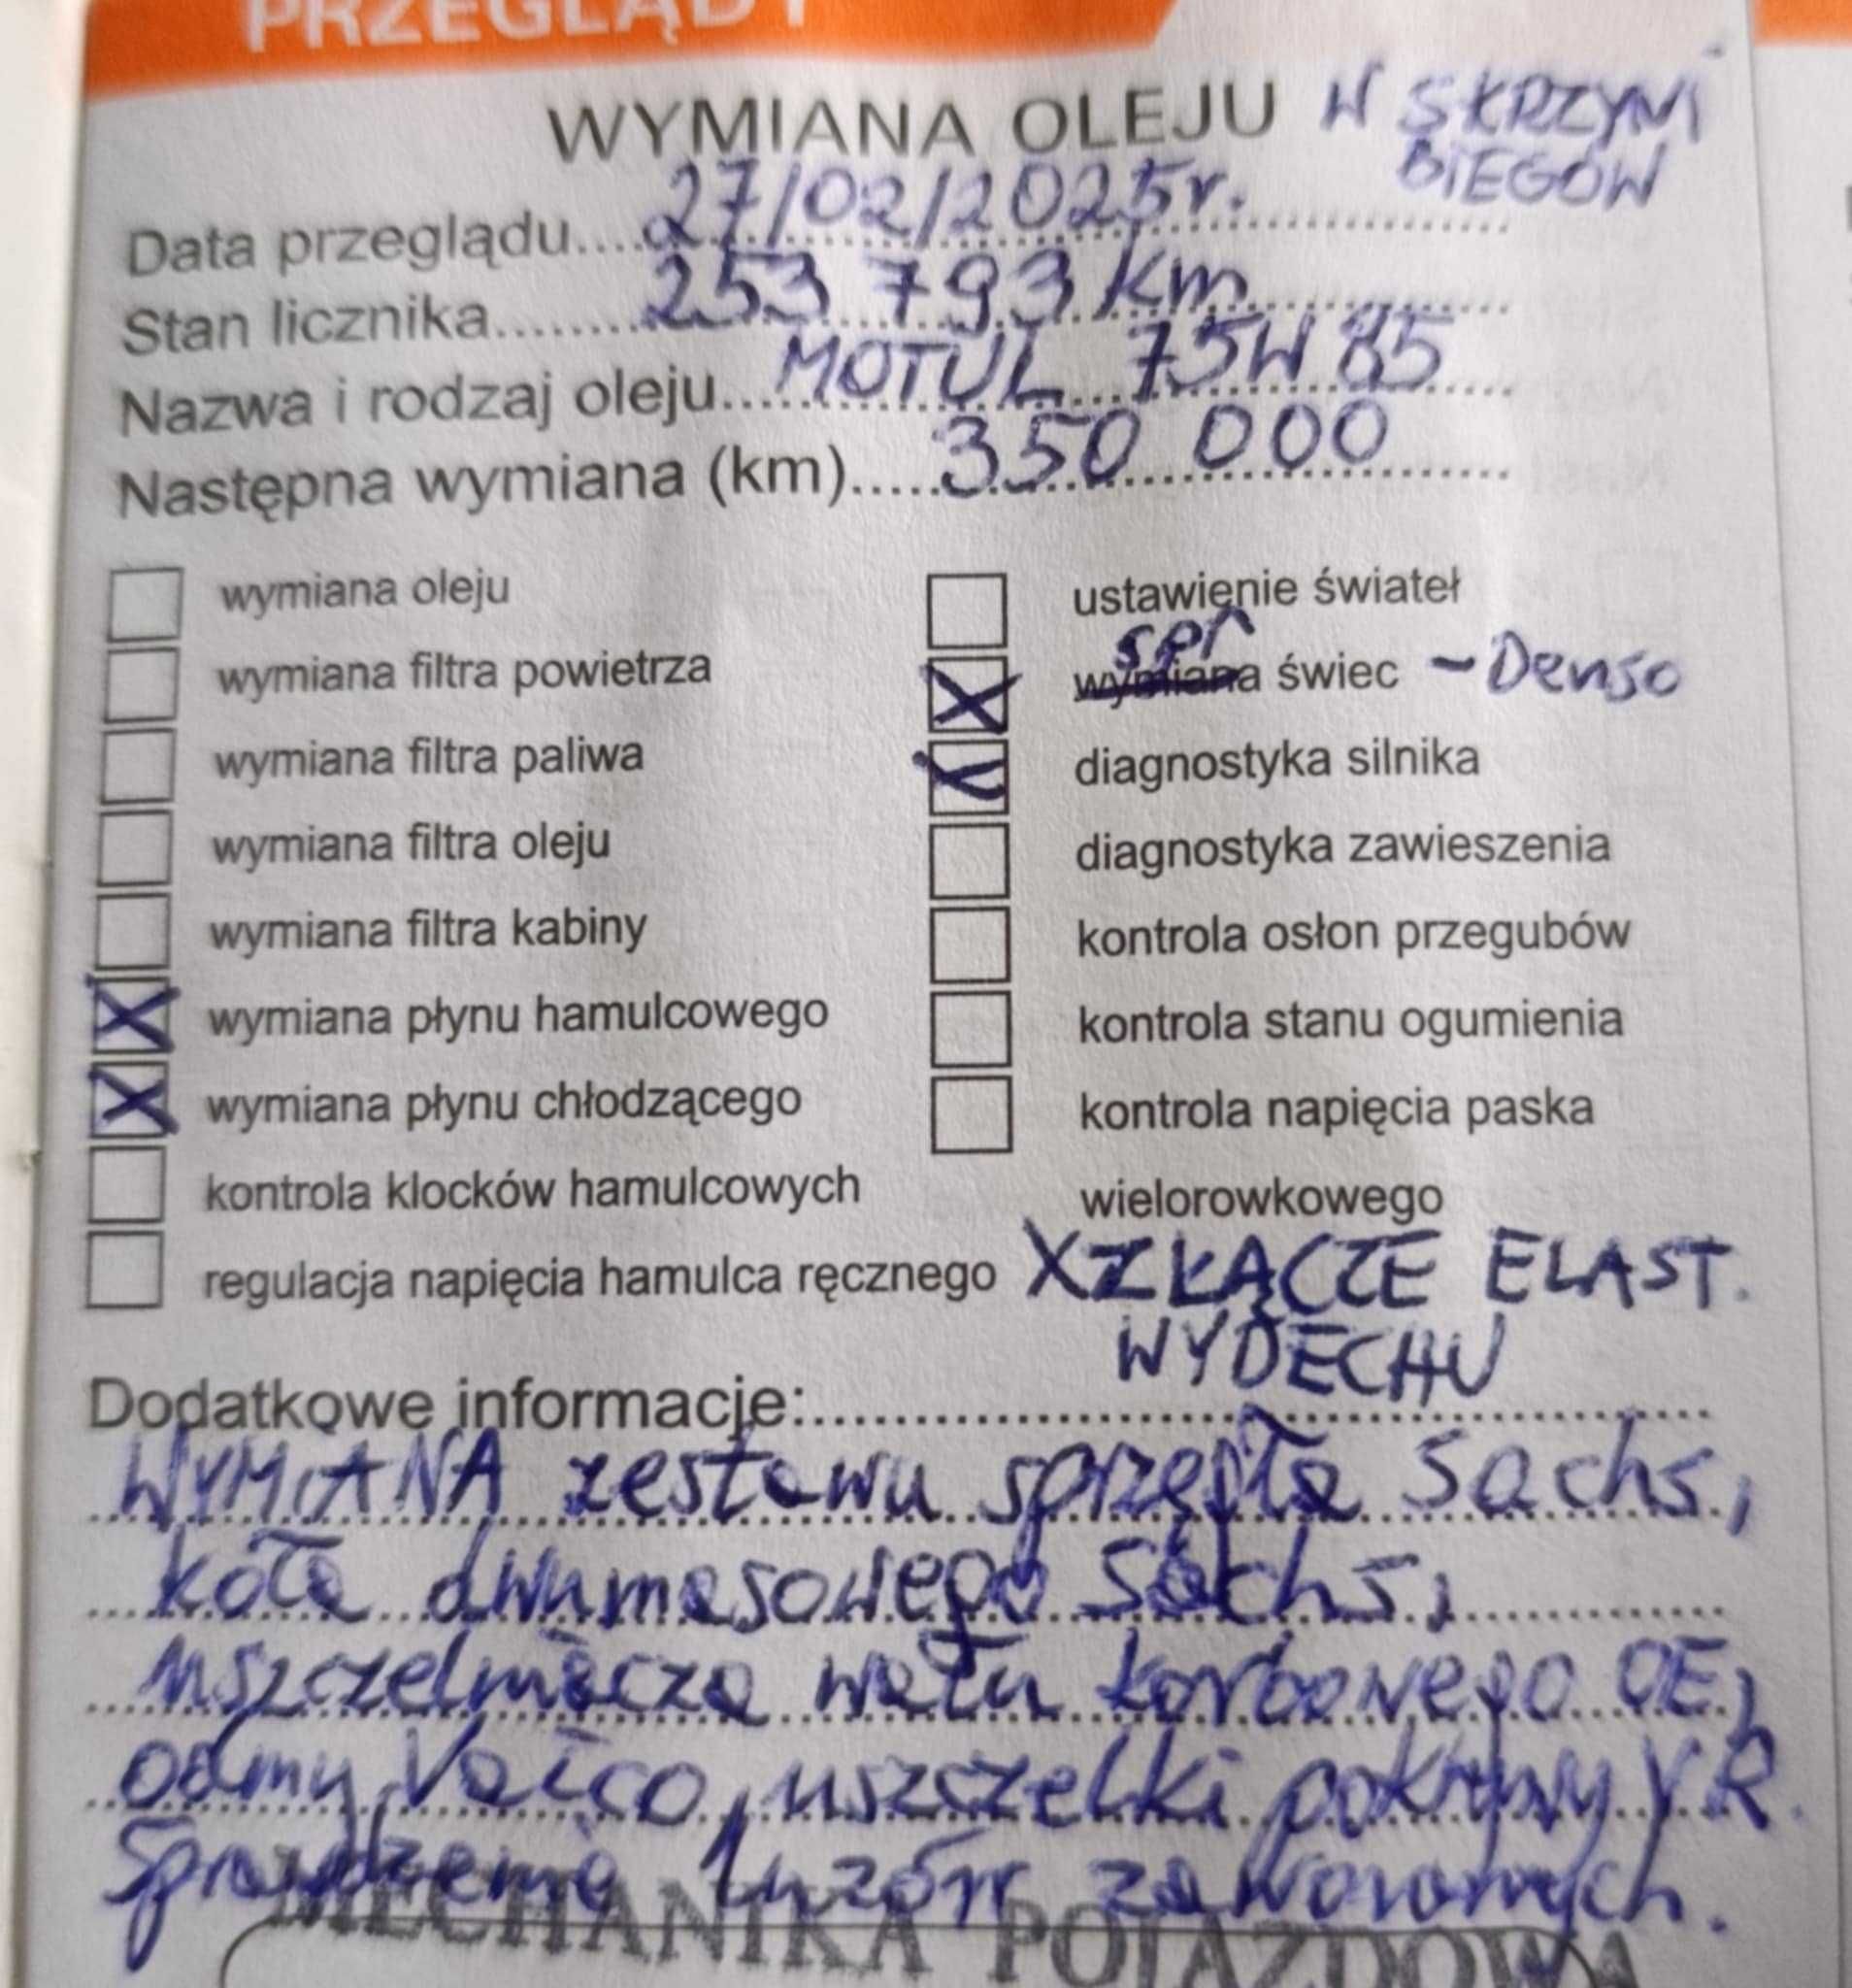 PRZEGLĄDY
WYMIANA OLEJU W SKRZYNI
BIEGÓW
Data przeglądu....27/02/2025r.
Stan licznika.......253 793 km
Nazwa i rodzaj oleju...MOTUL 75W85
Następna wymiana (km).....350 000
wymiana oleju
wymiana filtra powietrza
wymiana filtra paliwa
wymiana filtra oleju
wymiana filtra kabiny
X wymiana płynu hamulcowego
X wymiana płynu chłodzącego
kontrola klocków hamulcowych
regulacja napięcia hamulca ręcznego
ustawienie świateł
spr
X wymiana świec - Denso
X diagnostyka silnika
diagnostyka zawieszenia
kontrola osłon przegubów
kontrola stanu ogumienia
kontrola napięcia paska
wielorowkowego
X ZŁĄCZE ELAST.
WYDECHU
Dodatkowe informacje:
WYMIANA zestawu sprzęgła Sachs,
koła dwumasowego Sachs,
uszczelniacza wału korbowego OE,
odmy Vaico, uszczelki pokrywy VR.
Sprawdzenie luzów zaworowych.
MECHANIKA POJAZDOWA